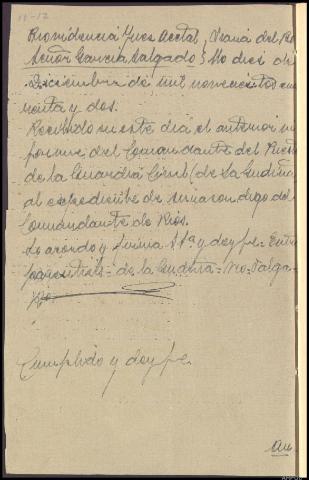 Providencia Juez Acctal, Viana del Bo
Señor García Salgado} diez de
Diciembre de mil novecientos cua
renta y dos.
Recibido en este día el anterior in
forme del Comandante del Puesto
de la Guardia Civil (de La Gudiña
al expediente de su razon digo del
Comandante de Rios.
Lo acordó y firma Sª y doy fe. Entre
parentesis = de la Gudiña = No Valga

Cumplido y doy fe